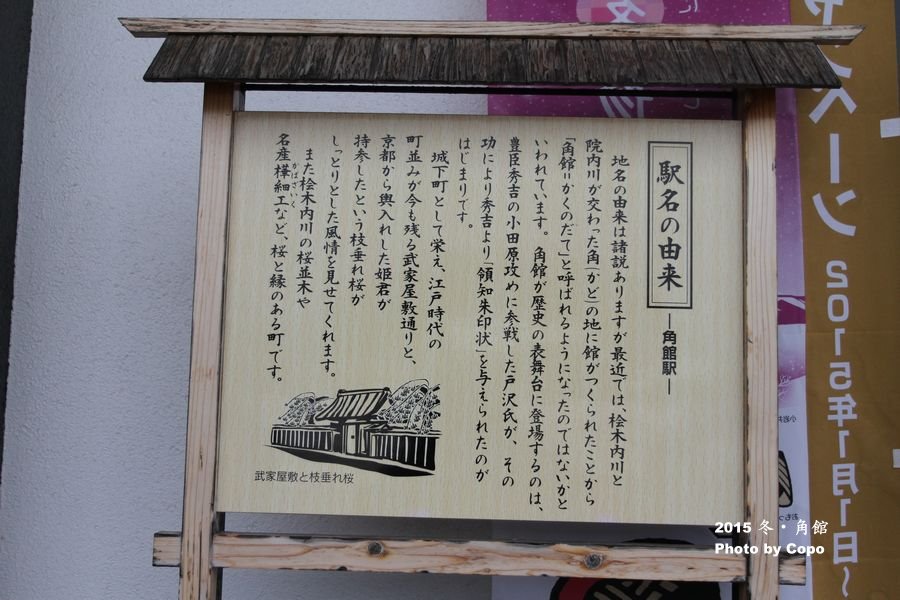 駅名の由来
―角館駅―
地名の由来は諸説ありますが最近では、桧木内川と
院内川が交わった角(かど)の地に館がつくられたことから
「角館=かくのだて」と呼ばれるようになったのではないかと
いわれています。角館が歴史の表舞台に登場するのは、
豊臣秀吉の小田原攻めに参戦した戸沢氏が、その
功により秀吉より「領知朱印状」を与えられたのが
はじまりです。
城下町として栄え、江戸時代の
町並みが今も残る武家屋敷通りと、
京都から輿入れした姫君が
持参したという枝垂れ桜が
しっとりとした風情を見せてくれます。
また桧木内川の桜並木や
名産樺細工など、桜と縁のある町です。
かばざいく
武家屋敷と枝垂れ桜
ズーン 2015年1月1日~
2015 冬・角館
Photo by Copo